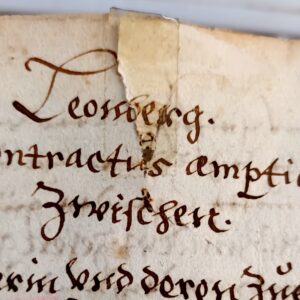 Leonberg.
ontractus æmptio
Zwischen.
erin vnd deren zu